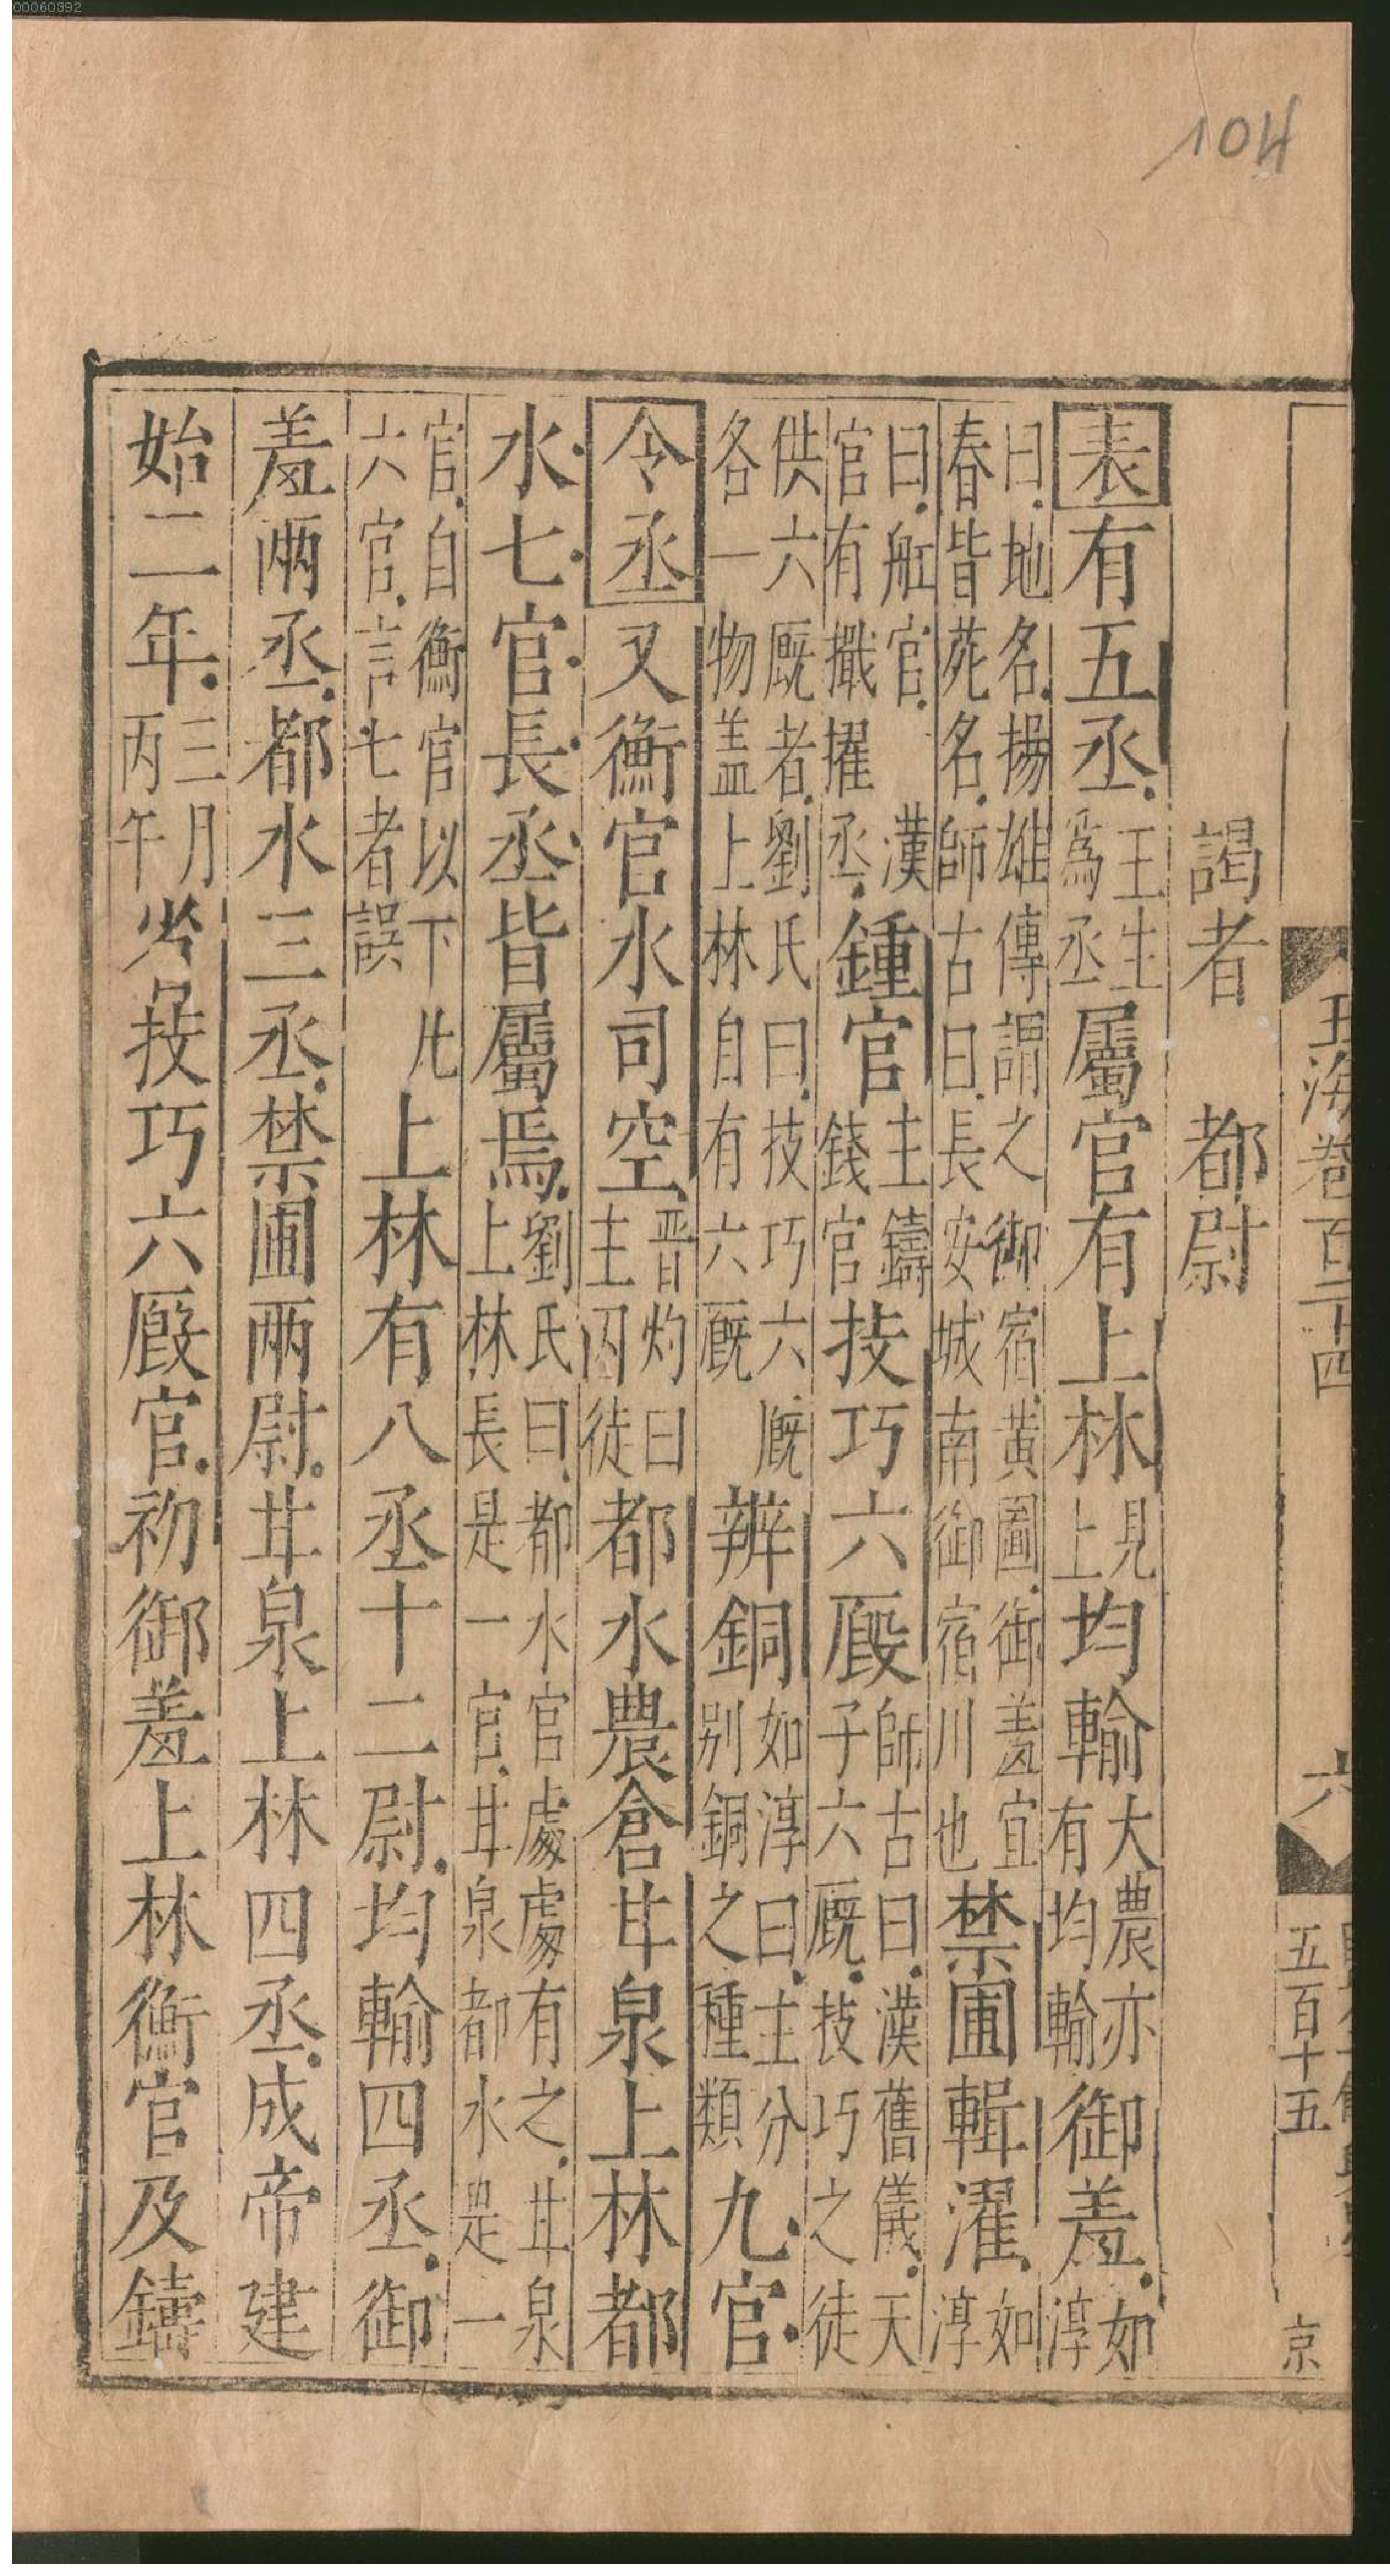 玉海卷百二十四 六 五百十五 京
謁者 都尉
表有五丞王生為丞屬官有上林見上均輸大農亦有均輸御羞如淳
曰地名揚雄傳謂之御宿黃圖御羞宜春皆苑名師古曰長安城南御宿川也禁圃輯濯如淳
曰舡官漢官有檝擢丞鍾官主鑄錢官技巧六廄師古曰漢舊儀天子六厩技巧之徒
供六厩者劉氏曰技巧六厩各一物盖上林自有六厩辨銅如淳曰主分别銅之種類九官
令丞又衡官水司空晋灼曰主囚徒都水農倉甘泉上林都
水七官長丞皆屬焉劉氏曰都水官處處有之甘泉上林長是一官甘泉都水是一
官自衡官以下凡六官言七者誤上林有八丞十二尉均輸四丞御
羞兩丞都水三丞禁圃兩尉甘泉上林四丞成帝建
始二年三月丙午省技巧六廄官初御羞上林衡官及鑄
104
00060392